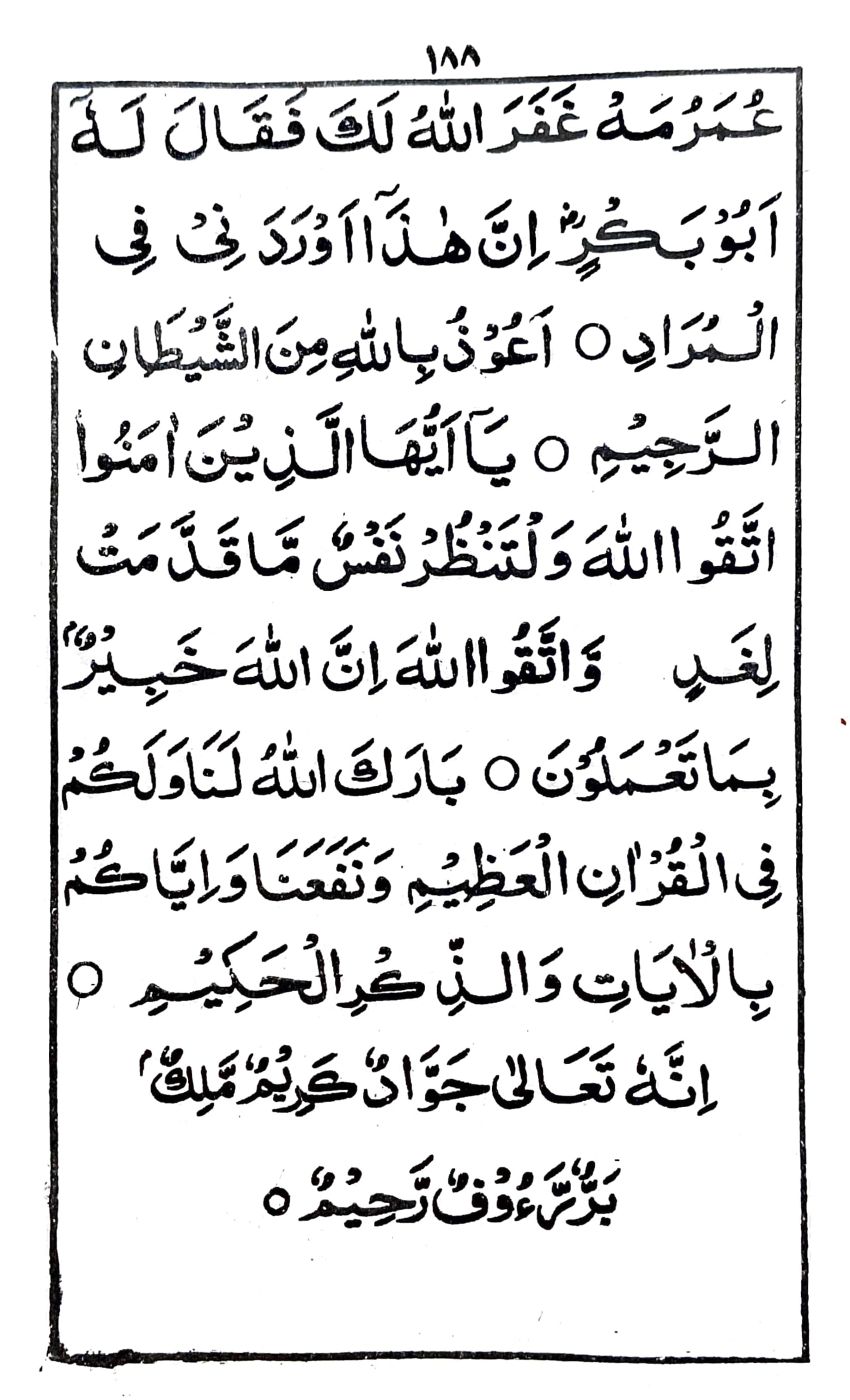 ١٨٨
عُمَرُ مَهْ غَفَرَ اللهُ لَكَ فَقَالَ لَهٗٓ
اَبُوْ بَكْرٍؓ اِنَّ هٰذَآ اَوْرَدَنِیْ فِی
الْمُرَادِ ○ اَعُوْذُ بِاللهِ مِنَ الشَّيْطَانِ
الرَّجِيْمِ ○ يَآ اَيُّهَا الَّذِيْنَ اٰمَنُوا
اتَّقُوا اللهَ وَلْتَنْظُرْ نَفْسٌ مَّا قَدَّمَتْ
لِغَدٍ وَّاتَّقُوا اللهَ اِنَّ اللهَ خَبِيْرٌۢ
بِمَا تَعْمَلُوْنَ ○ بَارَكَ اللهُ لَنَا وَلَكُمْ
فِی الْقُرْاٰنِ الْعَظِيْمِ وَنَفَعَنَا وَاِيَّاكُمْ
بِالْاٰيَاتِ وَالذِّكْرِ الْحَكِيْمِ ○
اِنَّهٗ تَعَالٰی جَوَّادٌ كَرِيْمٌ مَّلِكٌۢ
بَرٌّ رَّءُوْفٌ رَّحِيْمٌ ○